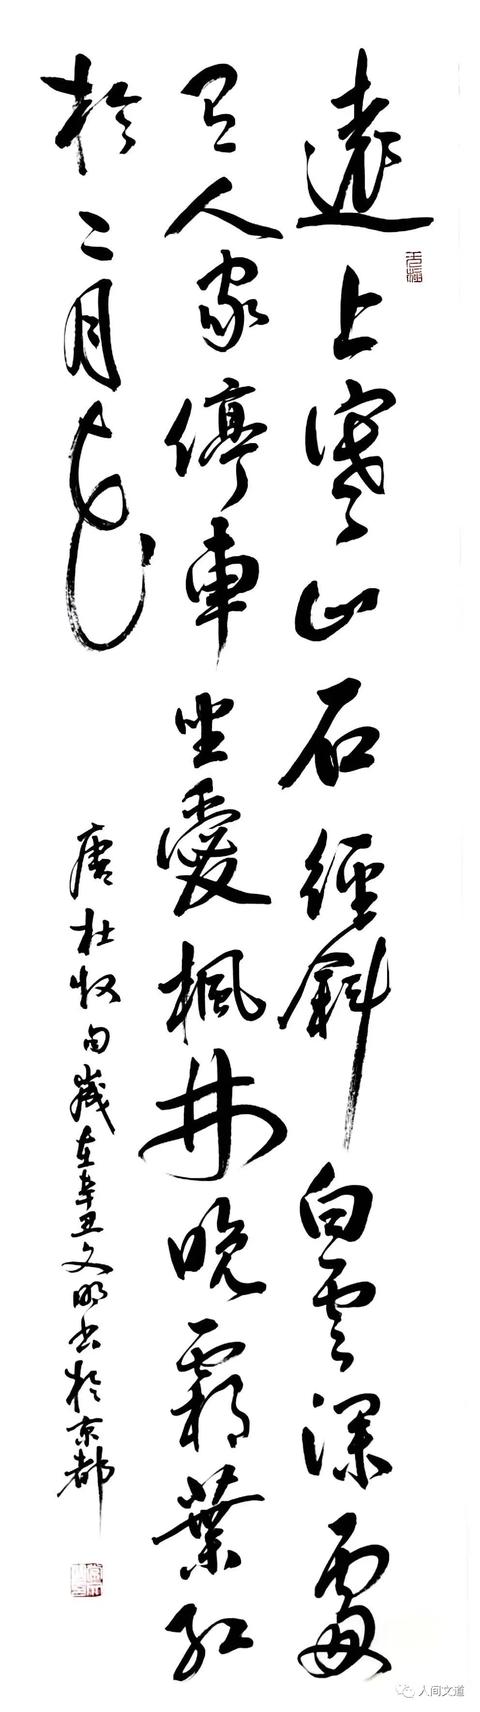 遠上寒山石徑斜白雲深處
有人家停車坐愛楓林晚霜葉紅
於二月花
唐杜牧句歲在辛丑文明書於京都
人间文道